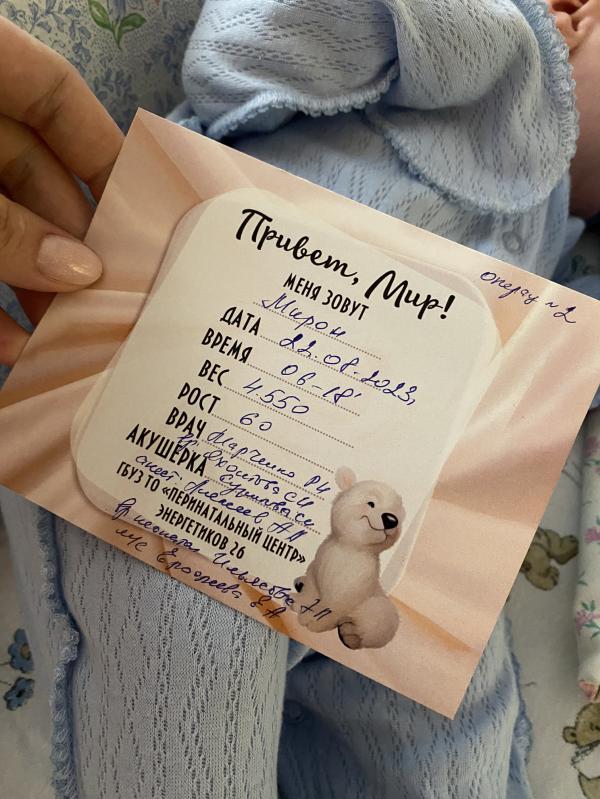 Привет, Мир!
Операц N2
МЕНЯ ЗОВУТ
Мирон
ДАТА 22.08.2023,
ВРЕМЯ 06-18'
ВЕС 4.550
РОСТ 60
ВРАЧ Марченко РЧ
АКУШЕРКА
анест. Алексеев АП
ГБУЗ ТО «ПЕРИНАТАЛЬНЫЙ ЦЕНТР»
ЭНЕРГЕТИКОВ 26
м/с Ерофеева